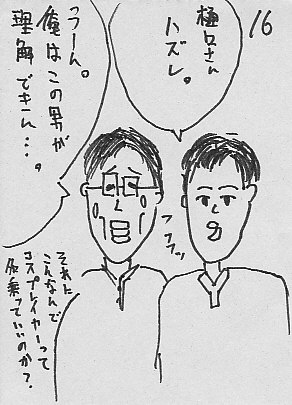 16
樋口さん
ハズレ。
うーん。
俺はこの男が
理解できん…。
フフフッ
それに
こんなんで
コスプレイヤーって
名乗っていいのか?